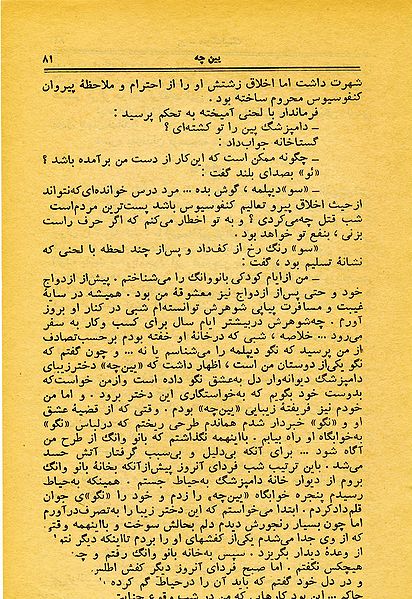 ۸۱
یین چه
شهرت داشت اما اخلاق زشتش او را از احترام و ملاحظهٔ پیروان
کنفوسیوس محروم ساخته بود .
فرماندار با لحنی آمیخته به تحکم پرسید :
ــ دامپزشگ یین را تو کشته‌ای ؟
گستاخانه جواب‌داد :
ــ چگونه ممکن است که این‌کار از دست من برآمده باشد ؟
«ئو» بصدای بلند گفت :
ــ «سو»دیپلمه ، گوش بده ... مرد درس خوانده‌ای‌که‌نتواند
ازحیث اخلاق پیرو تعالیم کنفوسیوس باشد پست‌ترین مردم‌است
شب قتل چه‌می‌کردی ؟ و به تو اخطار می‌کنم که اگر حرف راست
بزنی ، بنفع تو خواهد بود .
«سو» رنگ رخ از کف‌داد و پس‌از چند لحظه با لحنی که
نشانهٔ تسلیم بود ، گفت :
ــ من ازایام کودکی بانووانگ را می‌شناختم . پیش‌از ازدواج
خود و حتی پس‌از ازدواج نیز معشوقهٔ من بود . همیشه در سایهٔ
غیبت و مسافرت پیاپی شوهرش توانسته‌ام شبی در کنار او بروز
آورم . چه‌شوهرش دربیشتر ایام سال برای کسب وکار به سفر
می‌رود ... خلاصه ، شبی که درخانهٔ او خفته بودم برحسب‌تصادف
از من پرسید که نگو دیپلمه را می‌شناسم یا نه ... و چون گفتم که
نگو یکی‌از دوستان من است ، اظهار داشت که «یین‌چه» دخترزیبای
دامپزشگ دیوانه‌وار دل به‌عشق نگو داده است وازمن خواست‌که
بدوست خود بگویم که به‌خواستگاری این دختر برود . و اما من
خودم نیز فریفتهٔ زیبایی «یین‌چه» بودم . وقتی که از قضیهٔ عشق
او و «نگو» خبردار شدم همان‌دم طرحی ریختم که درلباس «نگو»
به‌خوابگاه او راه بیابم . بااینهمه نگذاشتم که بانو وانگ از طرح من
آگاه شود ... برای آنکه بی‌دلیل و بی‌سبب گرفتار آتش حسد
می‌شد . باین ترتیب شب فردای آنروز پیش‌ازآنکه بخانهٔ بانو وانگ
بروم از دیوار خانهٔ دامپزشگ به‌حیاط جستم . همینکه به‌حیاط
رسیدم پنجره خوابگاه «یین‌چه» را زدم و خود را «نگو»ی جوان
قلم‌دادکردم . ابتدا می‌خواستم که این دختر زیبا را به‌تصرف‌درآورم
اما چون بسیار رنجورش دیدم دلم بحالش سوخت و بااینهمه وقتی
که از وی جدا می‌شدم یکی‌از کفشهای او را بردم تااینکه دیگر
از وعدهٔ دیدار بگریزد . سپس به‌خانه بانو وانگ رفتم و
هیچکس نگفتم . اما صبح فردای آنروز دیگر کفش اطلس
و در دل خود گفتم که باید آن را درحیاط گم کرده
این بود کارهایی که من در شب وقوع